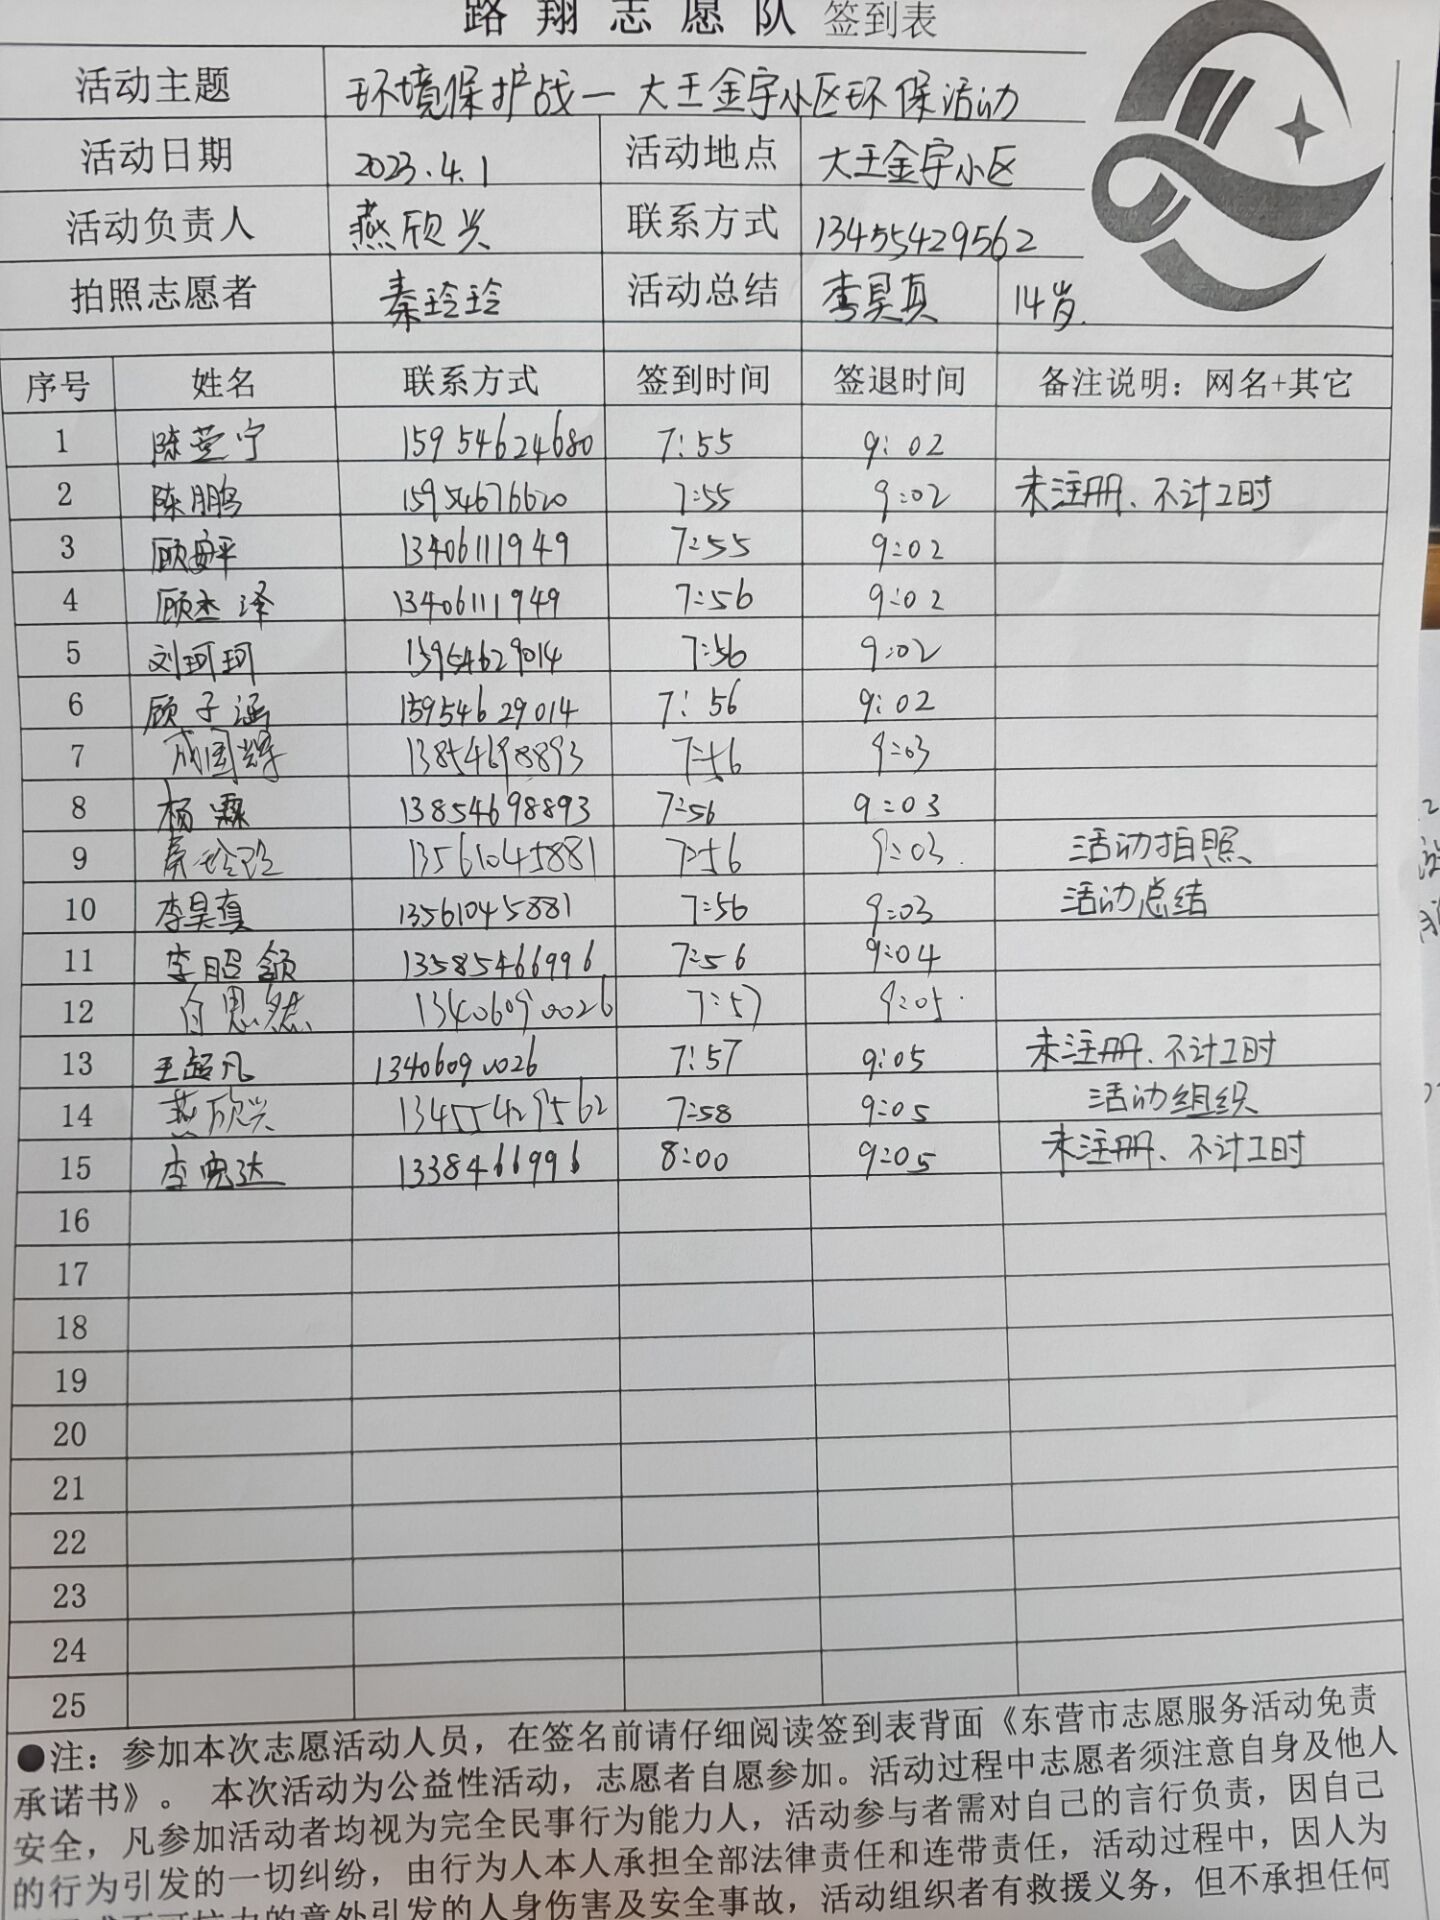 路翔志愿队 签到表
活动主题 环境保护战一大王金宇小区环保活动
活动日期 2023.4.1 活动地点 大王金宇小区
活动负责人 燕欣兴 联系方式 13455429562
拍照志愿者 秦玲玲 活动总结 李昊真 14岁.
序号 姓名 联系方式 签到时间 签退时间 备注说明：网名+其它
1 陈萱宁 15954624680 7:55 9:02
2 陈鹏 15954676620 7:55 9:02 未注册、不计工时
3 顾安平 13406111949 7:55 9:02
4 顾杰泽 13406111949 7:56 9:02
5 刘珂珂 15954629014 7:56 9:02
6 顾子涵 15954629014 7:56 9:02
7 成国辉 13854698893 7:56 9:03
8 杨霖 13854698893 7:56 9:03
9 秦玲玲 13561045881 7:56 9:03. 活动拍照
10 李昊真 13561045881 7:56 9:03 活动总结
11 李昭颔 13585466996 7:56 9:04
12 白思然 13406090026 7:57 9:05
13 王超凡 13406090026 7:57 9:05 未注册、不计工时
14 燕欣兴 13455429562 7:58 9:05 活动组织
15 李宪达 1338466996 8:00 9:05 未注册、不计工时
16
17
18
19
20
21
22
23
24
25
●注：参加本次志愿活动人员，在签名前请仔细阅读签到表背面《东营市志愿服务活动免责
承诺书》。 本次活动为公益性活动，志愿者自愿参加。活动过程中志愿者须注意自身及他人
安全，凡参加活动者均视为完全民事行为能力人，活动参与者需对自己的言行负责，因自己
的行为引发的一切纠纷，由行为人本人承担全部法律责任和连带责任，活动过程中，因人为
不可抗力的意外引发的人身伤害及安全事故，活动组织者有救援义务，但不承担任何